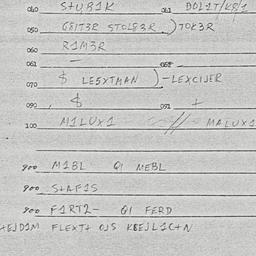 040 S+UB1K 041 DOL1T/KR/1
050 G8IT3R STOL83R ) TOK3R
060 R1M3R
061 — 068 —
070 $ LE5XTMAN ) -LEXCIJER
090 $ 091 +
100 M1LUX1 // MALUX1
900 M1BL Q1 MEBL
900 S+AF1S
900 F1RT2- Q1 FERD
+EJD1M FLEXT+ OJS KBEJL1C+N